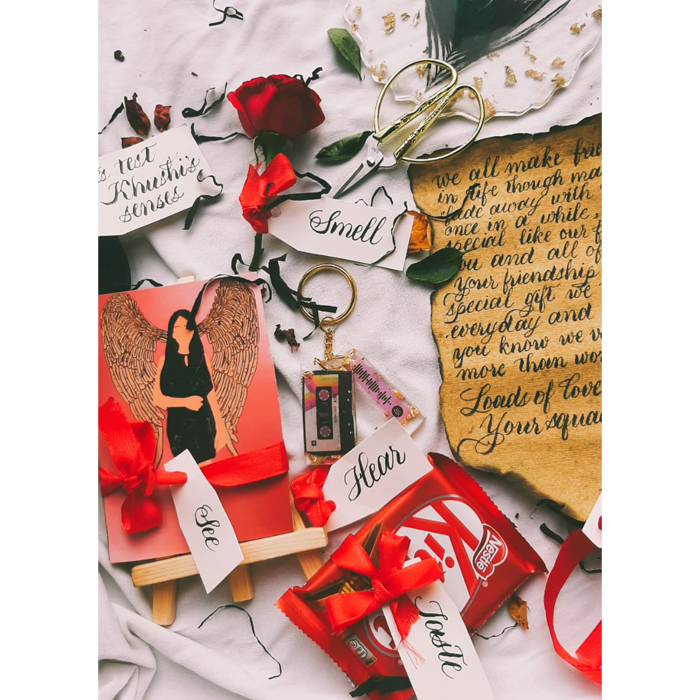 s test
Khushi's
senses
Smell
we all make frie
in life though ma
fade away with
once in a while,
special like our f
you and all of
your friendship
special gift we
everyday and
you know we v
more than wo
Loads of love
Your squa
Hear
See
Nestlé
Taste